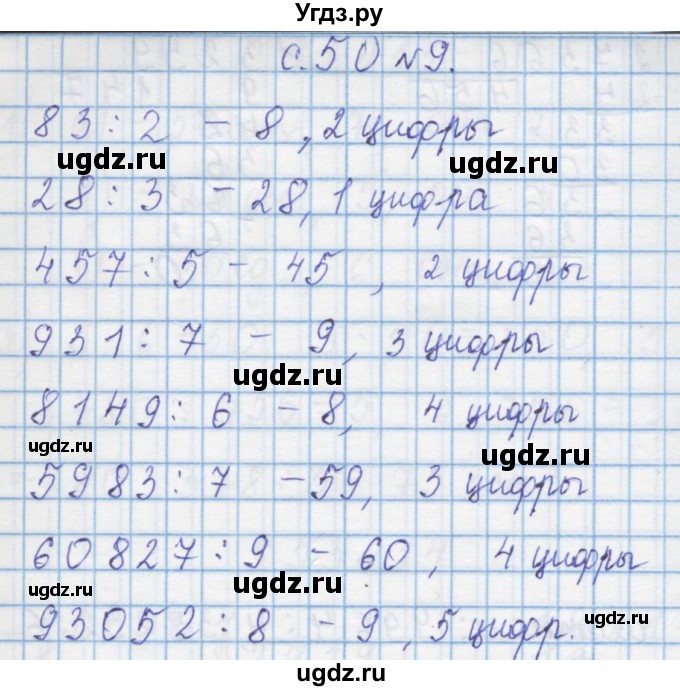 Угдз.ру
с.50 №9.
83:2 - 8, 2 цифры
ugdz.ru
ugdz.ru
28:3 - 28, 1 цифра
457:5 - 45, 2 цифры
931:7 - 9, 3 цифры
ugdz.ru
8149:6 - 8, 4 цифры
ugdz.ru
ugdz.ru
5983:7 - 59, 3 цифры
60827:9 - 60, 4 цифры
ugdz.ru
93052:8 - 9, 5 цифр.
ugdz.ru
ugdz.ru